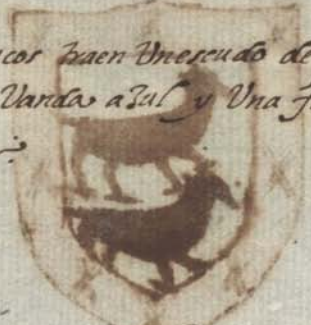 cos traen Un escudo de
Vanda azul y Una f